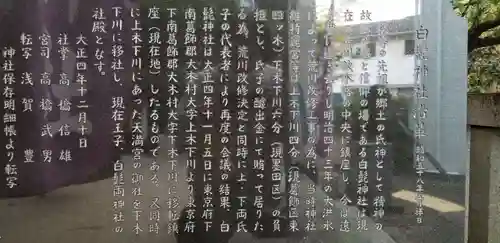 白髭神社沿革
郷土の氏神として精神の
信仰の場である白髭神社は現
中央に鎮座し、今は遠
明治四十三年の大洪水
荒川改修工事の為、当時神社
上木下川四分（現葛飾区東
四ッ木）下木下川六分（現墨田区）の負
担とし、氏子の醵出金にて賄って居りた
る為、荒川改修決定と同時に上・下両氏
子の代表者により再度の会議の結果、白
髭神社は大正四年十一月五日に東京府下
南葛飾郡大木村大字上木下川より東京府
下南葛飾郡大木村大字下木下川に移転鎮
座（現在地）したるものである。又同時
に上木下川にあった天満宮の御社を下木
下川に移社し、現在王子、白髭両神社の
社殿となす。
大正四年十二月十日
社掌 高橋信雄
宮司 高橋武男
転写 浅賀豊
神社保存明細帳より転写